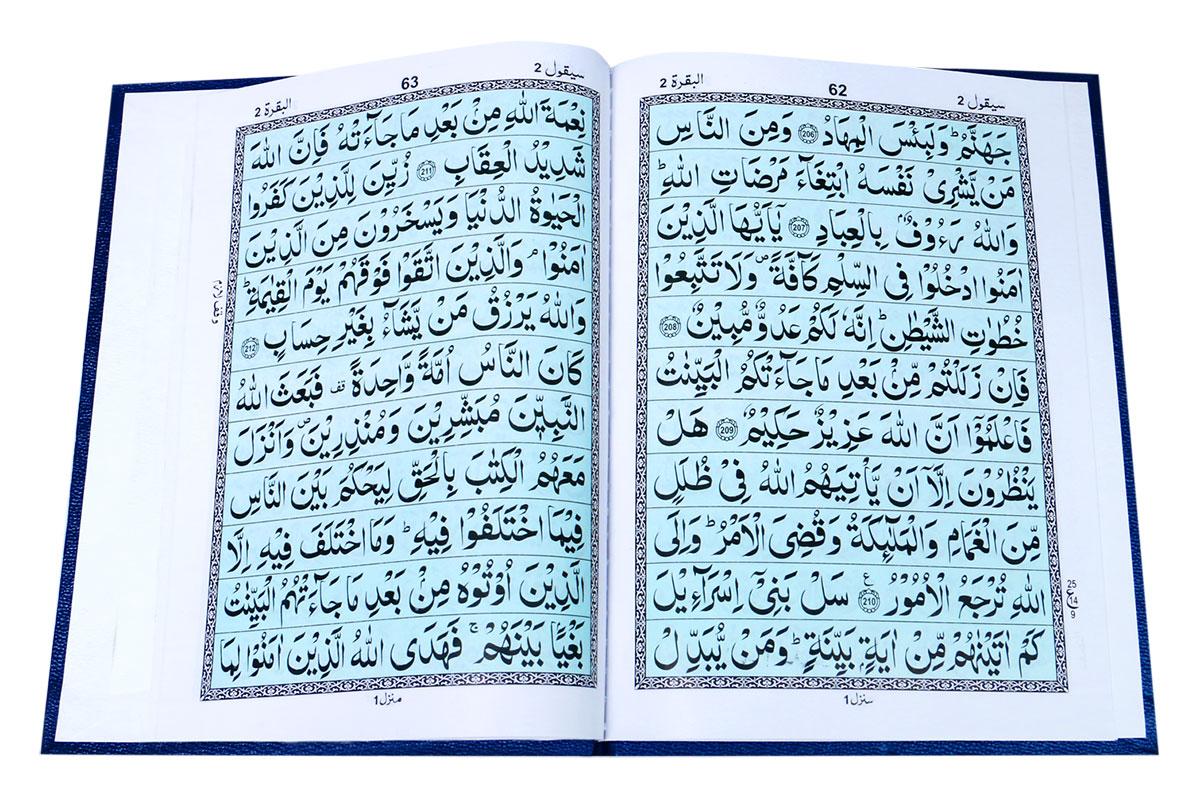 سيقول 2
62
البقرة 2
جَهَنَّمُ ؕ وَلَبِئْسَ الْمِهَادُ 206 وَمِنَ النَّاسِ
مَنْ يَّشْرِىْ نَفْسَهُ ابْتِغَآءَ مَرْضَاتِ اللّٰهِ ؕ
وَاللّٰهُ رَءُوْفٌۢ بِالْعِبَادِ 207 يٰۤاَيُّهَا الَّذِيْنَ
اٰمَنُوا ادْخُلُوْا فِى السِّلْمِ كَآفَّةً ۪ وَلَا تَتَّبِعُوْا
خُطُوٰتِ الشَّيْطٰنِ ؕ اِنَّهٗ لَكُمْ عَدُوٌّ مُّبِيْنٌ 208
فَاِنْ زَلَلْتُمْ مِّنْۢ بَعْدِ مَا جَآءَتْكُمُ الْبَيِّنٰتُ
فَاعْلَمُوْۤا اَنَّ اللّٰهَ عَزِيْزٌ حَكِيْمٌ 209 هَلْ
يَنْظُرُوْنَ اِلَّاۤ اَنْ يَّاْتِيَهُمُ اللّٰهُ فِىْ ظُلَلٍ
مِّنَ الْغَمَامِ وَالْمَلٰٓئِكَةُ وَقُضِىَ الْاَمْرُ ؕ وَاِلَى
اللّٰهِ تُرْجَعُ الْاُمُوْرُ 210 ع سَلْ بَنِىْۤ اِسْرَآءِيْلَ
كَمْ اٰتَيْنٰهُمْ مِّنْ اٰيَةٍۭ بَيِّنَةٍ ؕ وَمَنْ يُّبَدِّلْ
25
ع 14
9
منزل 1
سيقول 2
63
البقرة 2
نِعْمَةَ اللّٰهِ مِنْۢ بَعْدِ مَا جَآءَتْهُ فَاِنَّ اللّٰهَ
شَدِيْدُ الْعِقَابِ 211 زُيِّنَ لِلَّذِيْنَ كَفَرُوا
الْحَيٰوةُ الدُّنْيَا وَيَسْخَرُوْنَ مِنَ الَّذِيْنَ
اٰمَنُوْا ۘ وَالَّذِيْنَ اتَّقَوْا فَوْقَهُمْ يَوْمَ الْقِيٰمَةِ ؕ
وَاللّٰهُ يَرْزُقُ مَنْ يَّشَآءُ بِغَيْرِ حِسَابٍ 212
كَانَ النَّاسُ اُمَّةً وَّاحِدَةً قف فَبَعَثَ اللّٰهُ
النَّبِيّٖنَ مُبَشِّرِيْنَ وَمُنْذِرِيْنَ ۪ وَاَنْزَلَ
مَعَهُمُ الْكِتٰبَ بِالْحَقِّ لِيَحْكُمَ بَيْنَ النَّاسِ
فِيْمَا اخْتَلَفُوْا فِيْهِ ؕ وَمَا اخْتَلَفَ فِيْهِ اِلَّا
الَّذِيْنَ اُوْتُوْهُ مِنْۢ بَعْدِ مَا جَآءَتْهُمُ الْبَيِّنٰتُ
بَغْيًۢا بَيْنَهُمْ ۚ فَهَدَى اللّٰهُ الَّذِيْنَ اٰمَنُوْا لِمَا
منزل 1